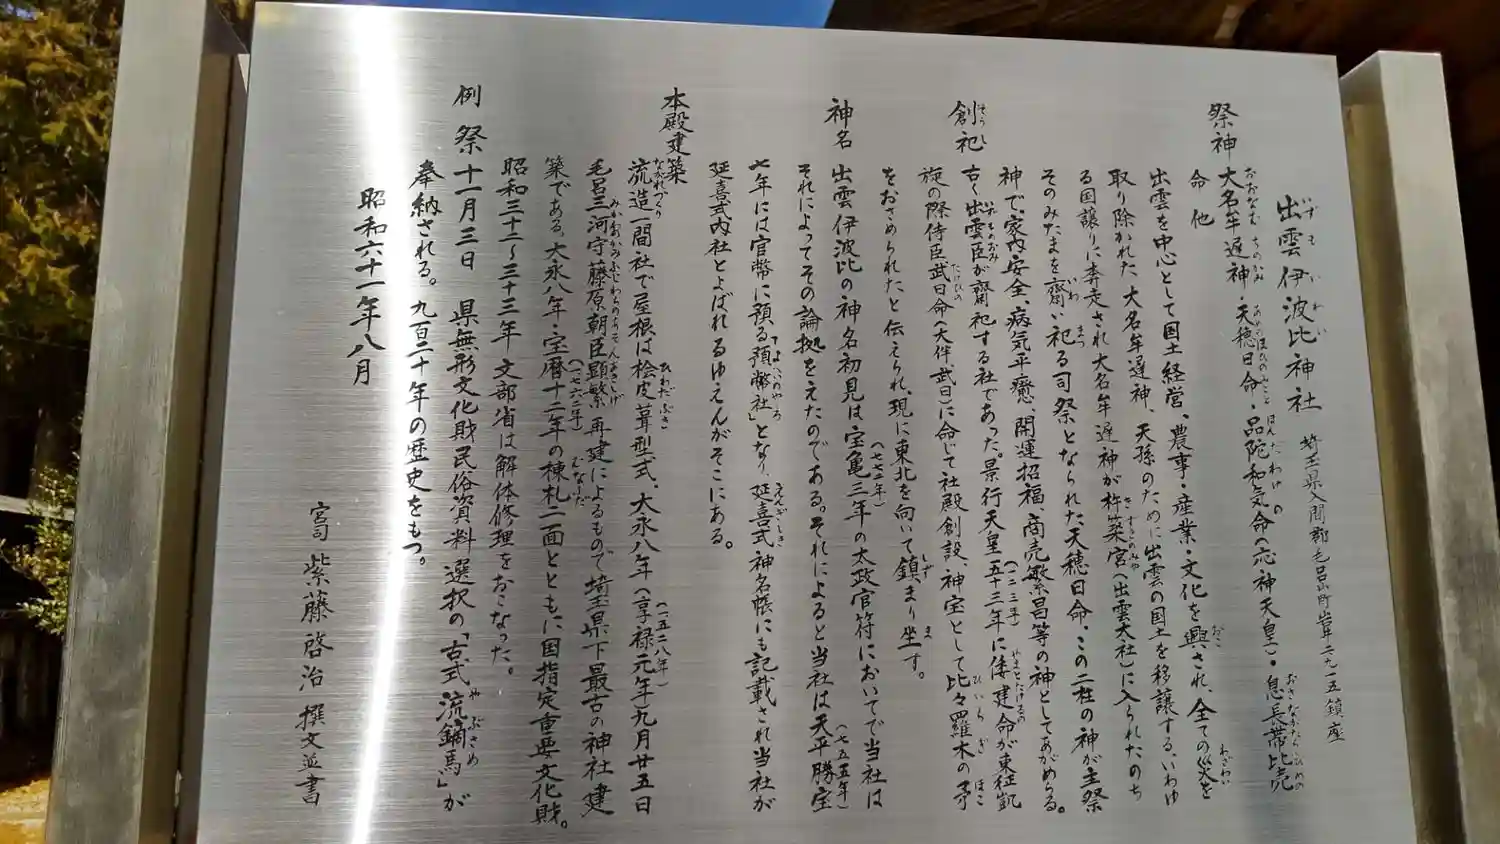 出雲伊波比神社 埼玉県入間郡毛呂山町岩井二九一五鎮座
祭神 大名牟遅神・天穂日命・品陀和気命(応神天皇)・息長帯比売
命 他
出雲を中心として国土経営、農事・産業・文化を興され、全ての災を
取り除かれた大名牟遅神、天孫のために出雲の国土を移譲する、いわゆ
る国譲りに奔走され大名牟遅神が杵築宮(出雲大社)に入られたのち
そのみたまを齋い祀る司祭となられた天穂日命、この二柱の神が主祭
神で、家内安全、病気平癒、開運招福、商売繁昌等の神としてあがめらる。
創祀 古く出雲臣が齋祀する社であった。景行天皇五十三年に倭建命が東征凱
旋の際侍臣武日命(大伴武日)に命じて社殿創設、神宝として比々羅木の矛
をおさめられたと伝えられ、現に東北を向いて鎮まり坐す。
神名 出雲伊波比の神名初見は宝亀三年の太政官符においてで当社は
それによってその論拠をえたのである。それによると当社は天平勝宝
七年には官幣に預る「預幣社」となり、延喜式神名帳にも記載され当社が
延喜式内社とよばれるゆえんがそこにある。
本殿建築 流造一間社で屋根は桧皮葺型式、大永八年(享禄元年)九月廿五日
毛呂三河守藤原朝臣顕繁再建によるもので埼玉県下最古の神社建
築である。大永八年・宝暦十二年の棟札二面とともに国指定重要文化財。
昭和三十二〜三十三年 文部省は解体修理をおこなった。
例祭 十一月三日 県無形文化財民俗資料選択の「古式流鏑馬」が
奉納される。九百二十年の歴史をもつ。
昭和六十一年八月
宮司 紫藤啓治 撰文並書